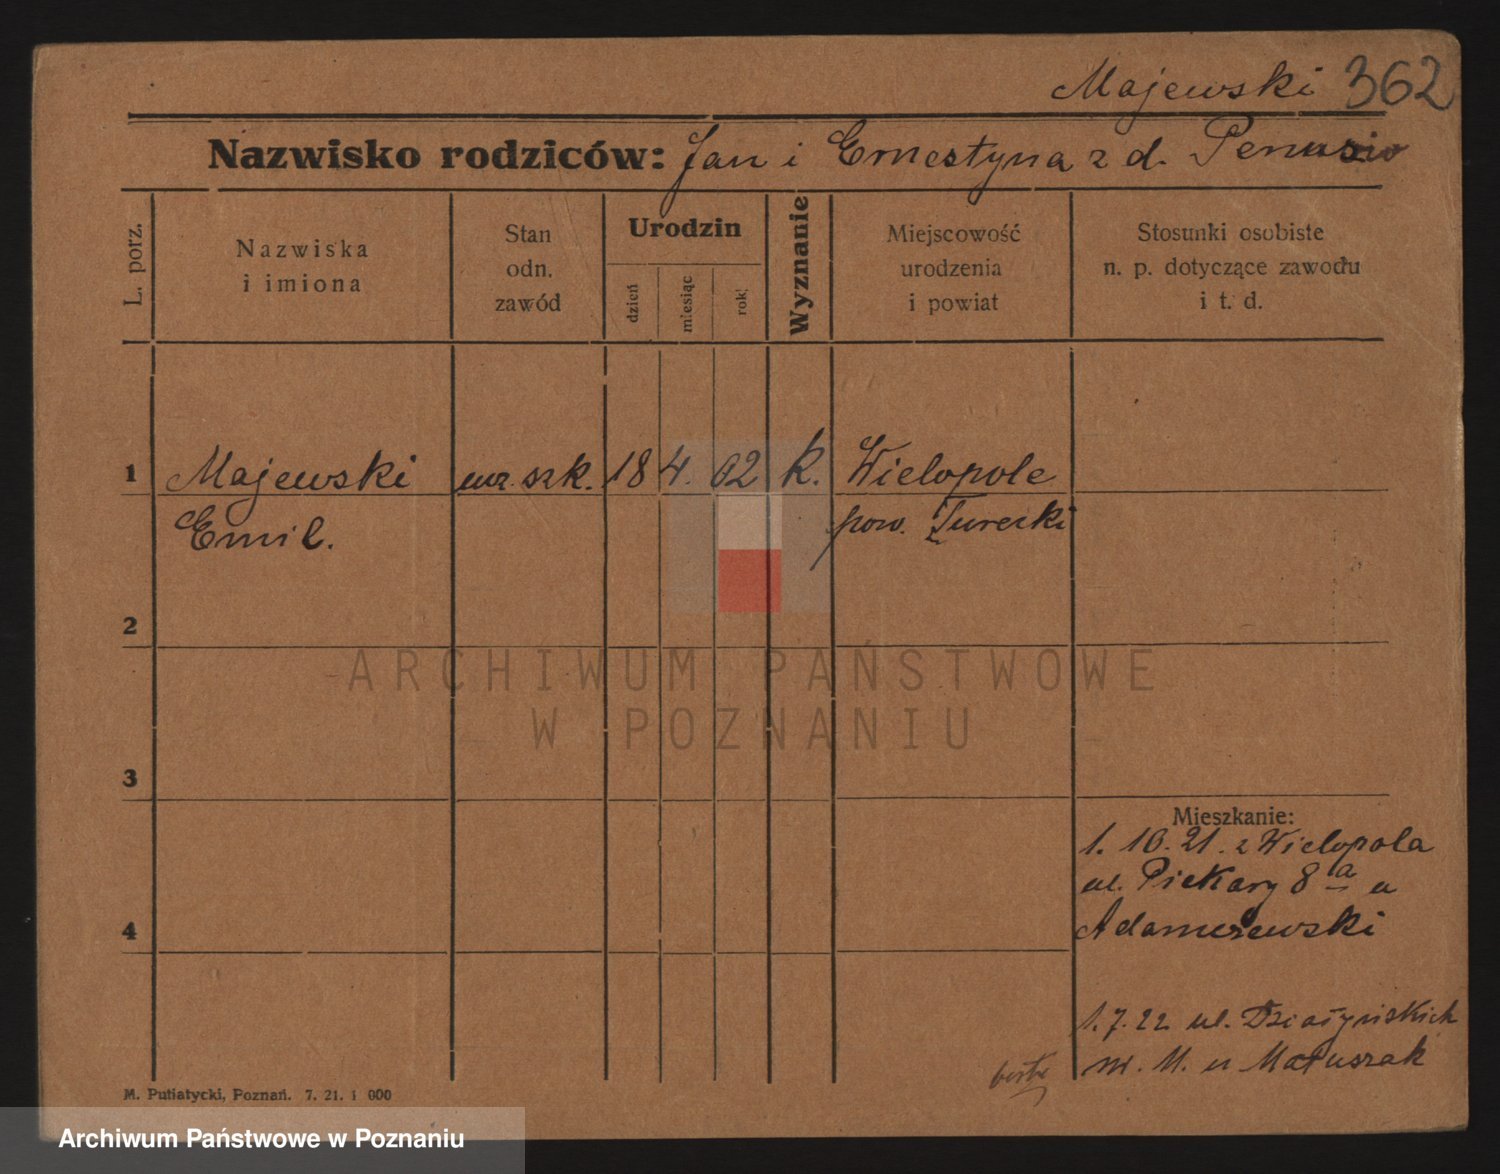 Majewski 362
Nazwisko rodziców: Jan i Ernestyna z d.
L. porz.
Nazwiska
i imiona
Stan
odn.
zawód
Urodzin
dzień
miesiąc
rok
Wyznanie
Miejscowość
urodzenia
i powiat
Stosunki osobiste
n. p. dotyczące zawodu
i t. d.
1 Majewski ucz. szk. 18 4. 02 k. Wielopole
Emil. pow. Turecki
2
ARCHIWUM PAŃSTWOWE
W POZNANIU
3
Mieszkanie:
1. 10. 21. z Wielopola
ul. Piekary 8 a u
4 Adamczewski
1. 7. 22 ul. Działyńskich
u Matuszak
M. Putiatycki, Poznań. 7. 21. 1 000
Archiwum Państwowe w Poznaniu